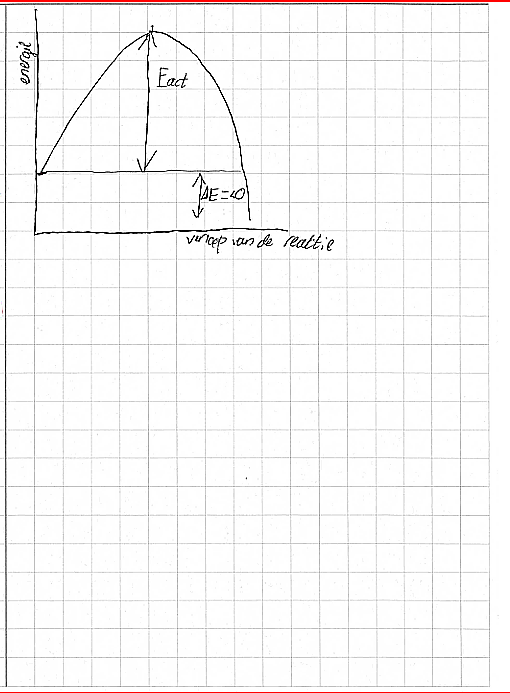 energie
Eact
ΔE = <0
verloop van de reactie